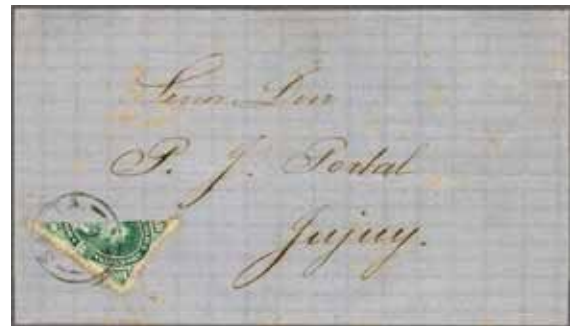 Señor Don
P. J. Portal
Jujuy.